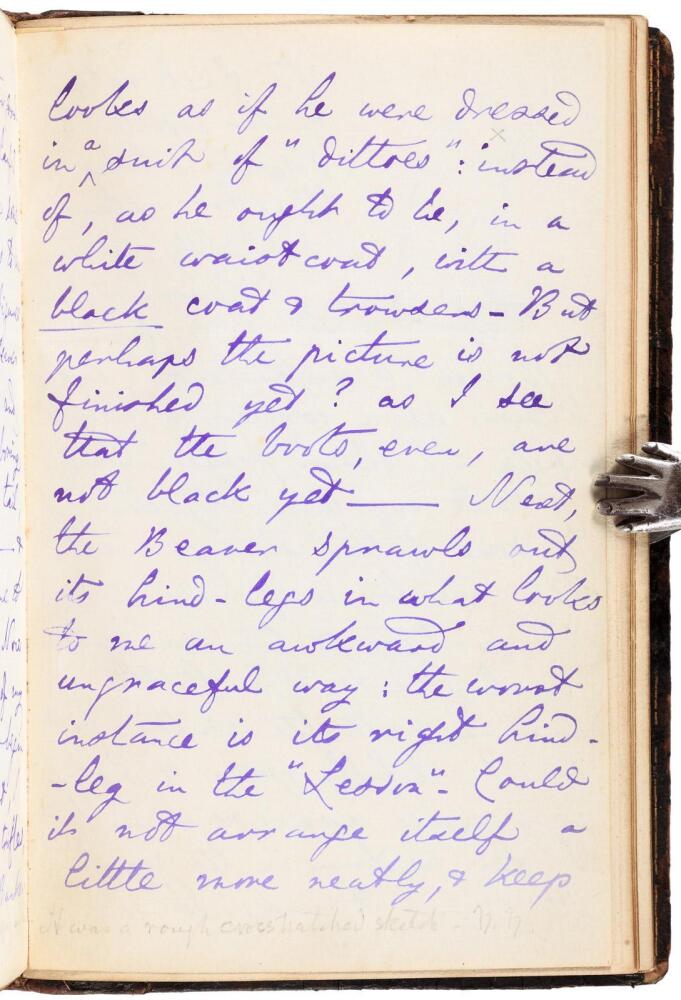 looks as if he were dressed
in a suit of "dittoes": instead
of, as he ought to be, in a
white waistcoat, with a
black coat & trowsers – But
perhaps the picture is not
finished yet? as I see
that the boots, even, are
not black yet —— Next,
the Beaver sprawls out
its hind-legs in what looks
to me an awkward and
ungraceful way: the worst
instance is its right hind-
-leg in the "Lesson" – Could
it not arrange itself a
little more neatly, & keep
It was a rough crosshatched sketch –